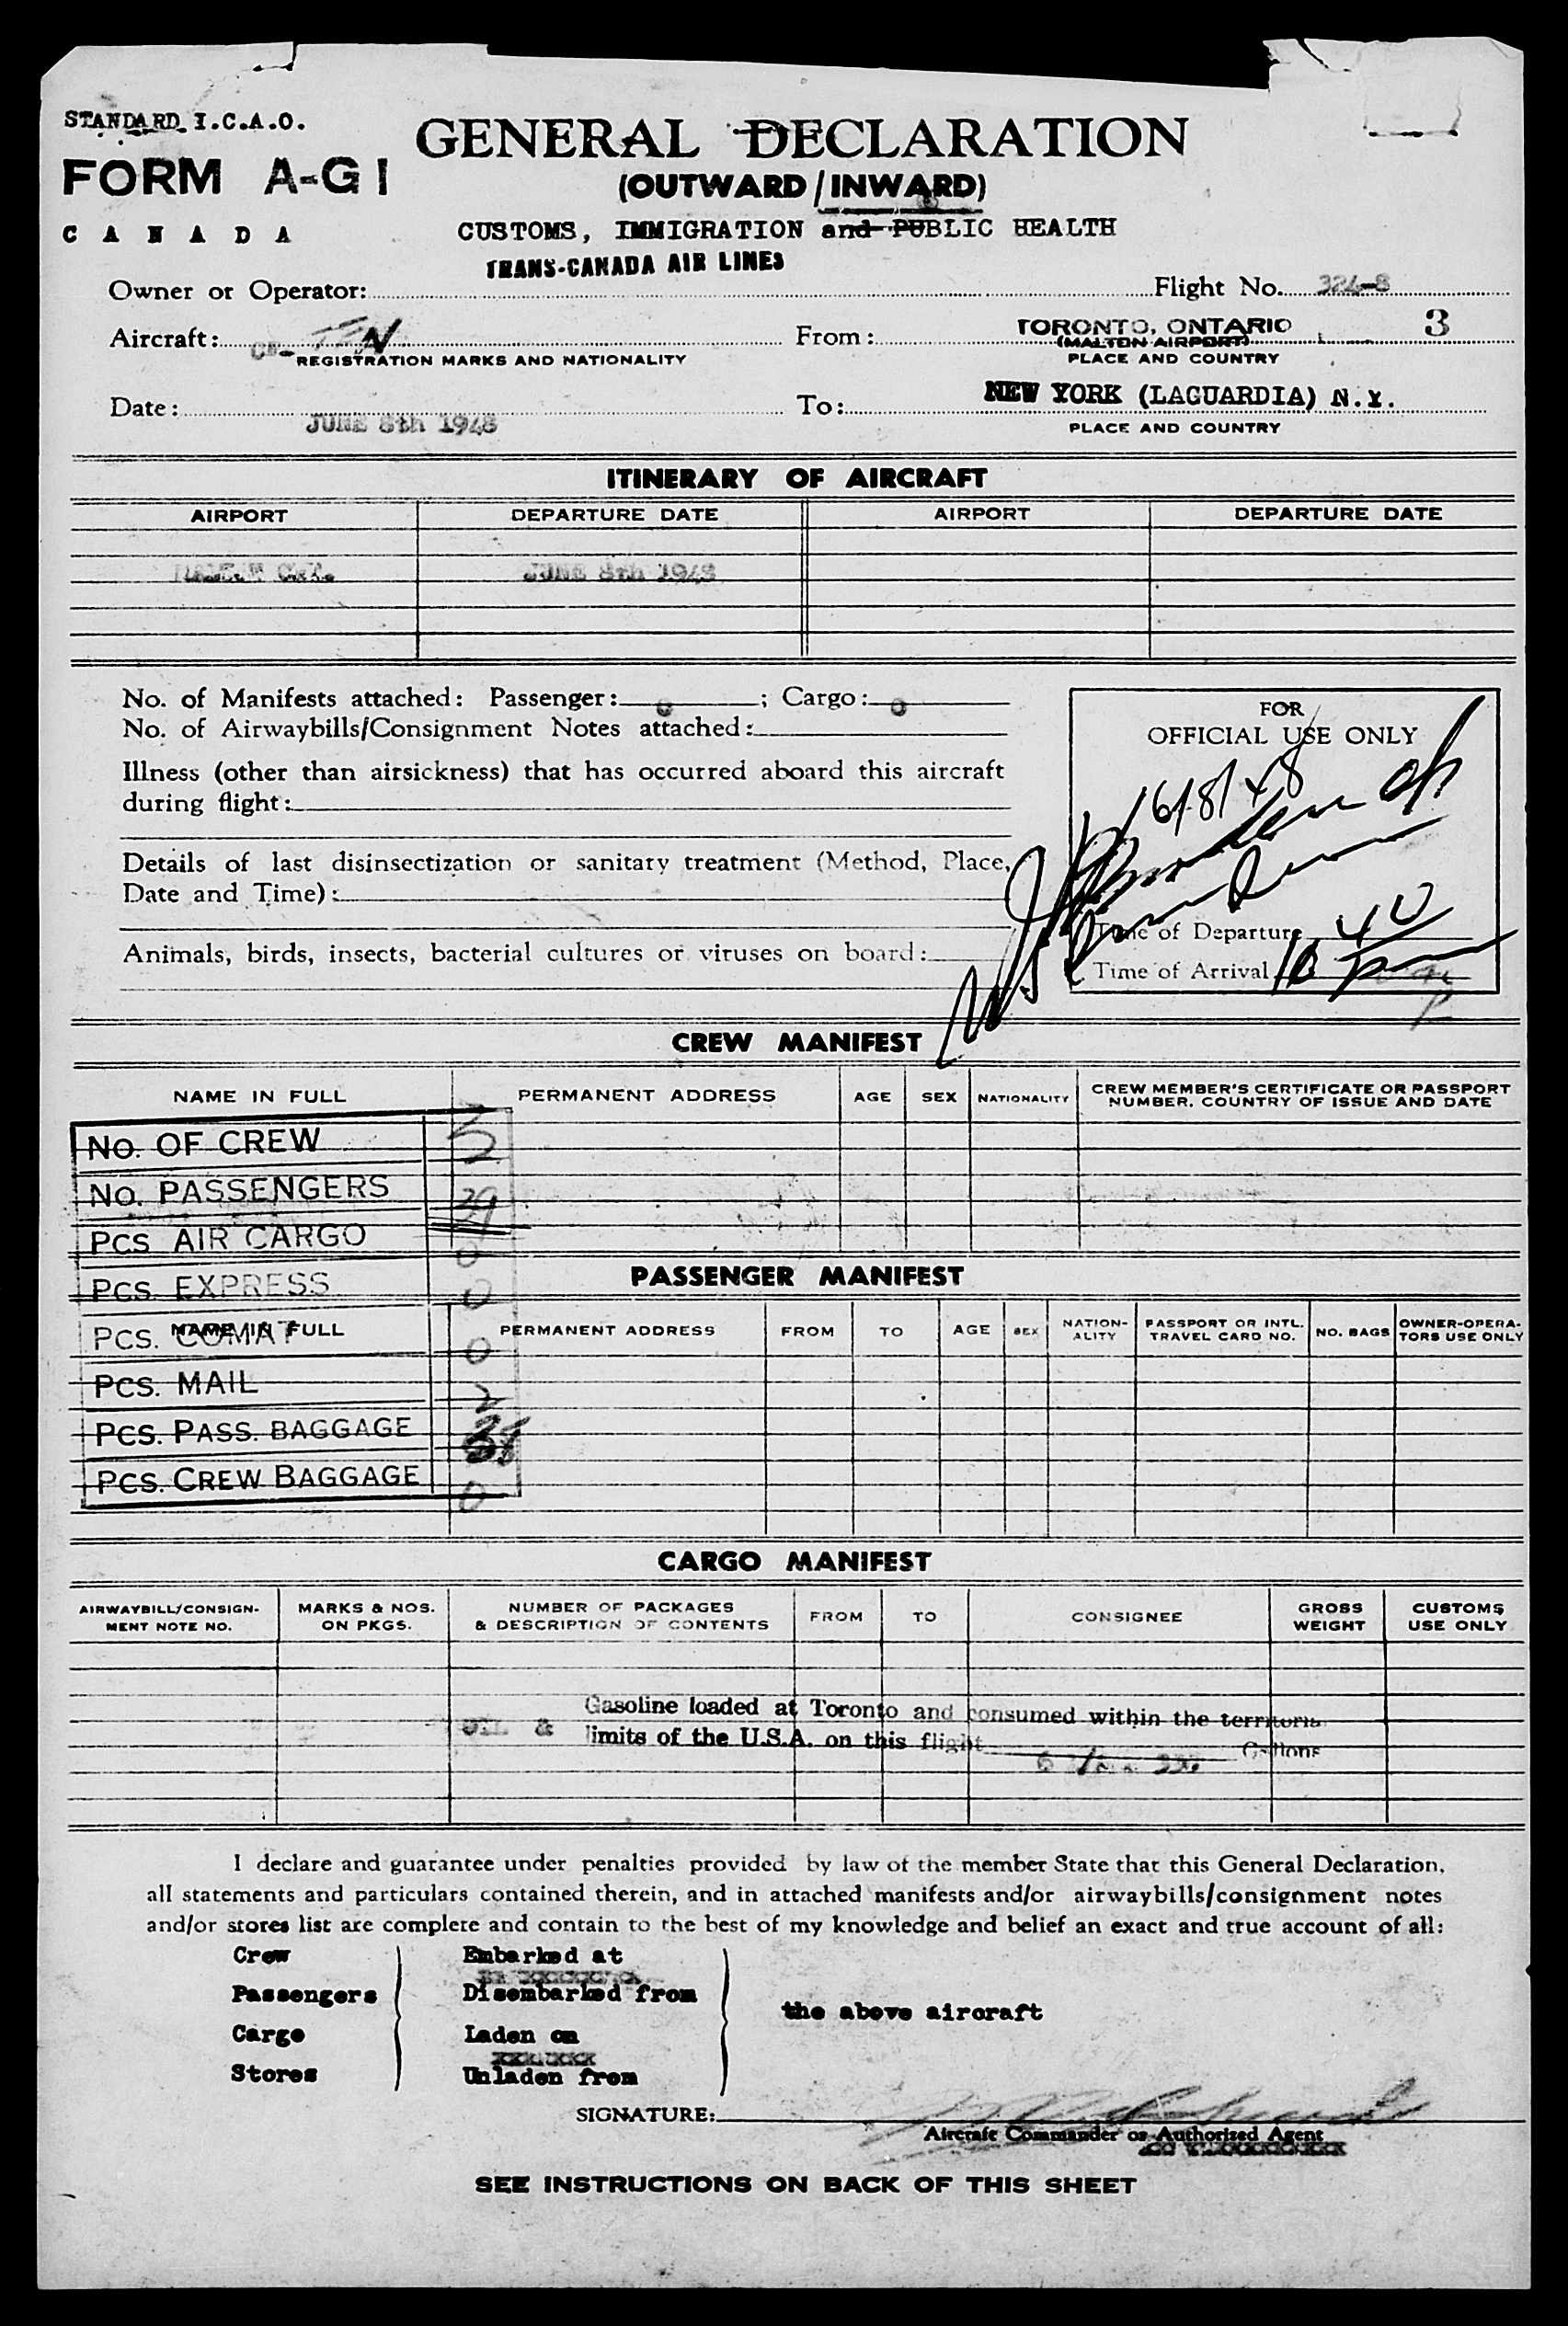 STANDARD I.C.A.O.
FORM A-G1
CANADA
GENERAL DECLARATION
(OUTWARD/INWARD)
CUSTOMS, IMMIGRATION and PUBLIC HEALTH
TRANS-CANADA AIR LINES
Owner or Operator:
Flight No. 324-8
Aircraft: CF-
REGISTRATION MARKS AND NATIONALITY
From: TORONTO, ONTARIO
(MALTON AIRPORT)
3
PLACE AND COUNTRY
Date: JUNE 8th 1948
To: NEW YORK (LAGUARDIA) N.Y.
PLACE AND COUNTRY
ITINERARY OF AIRCRAFT
AIRPORT DEPARTURE DATE AIRPORT DEPARTURE DATE
JUNE 8th 1948
No. of Manifests attached: Passenger: 0; Cargo: 0
No. of Airwaybills/Consignment Notes attached:
Illness (other than airsickness) that has occurred aboard this aircraft
during flight:
Details of last disinsectization or sanitary treatment (Method, Place,
Date and Time):
Animals, birds, insects, bacterial cultures or viruses on board:
FOR
OFFICIAL USE ONLY
6/8/48
Time of Departure
Time of Arrival 10 40
CREW MANIFEST
NAME IN FULL PERMANENT ADDRESS AGE SEX NATIONALITY CREW MEMBER'S CERTIFICATE OR PASSPORT
NUMBER, COUNTRY OF ISSUE AND DATE
No. OF CREW 3
No. PASSENGERS 29
PCS AIR CARGO 0
PCS. EXPRESS 0
PASSENGER MANIFEST
NAME IN FULL PERMANENT ADDRESS FROM TO AGE SEX NATION-
ALITY PASSPORT OR INTL.
TRAVEL CARD NO. NO. BAGS OWNER-OPERA-
TORS USE ONLY
PCS. COMAT 0
PCS. MAIL 2
PCS. PASS. BAGGAGE 38
PCS. CREW BAGGAGE 0
CARGO MANIFEST
AIRWAYBILL/CONSIGN-
MENT NOTE NO. MARKS & NOS.
ON PKGS. NUMBER OF PACKAGES
& DESCRIPTION OF CONTENTS FROM TO CONSIGNEE GROSS
WEIGHT CUSTOMS
USE ONLY
OIL & Gasoline loaded at Toronto and consumed within the
limits of the U.S.A. on this flight Gallons
I declare and guarantee under penalties provided by law of the member State that this General Declaration,
all statements and particulars contained therein, and in attached manifests and/or airwaybills/consignment notes
and/or stores list are complete and contain to the best of my knowledge and belief an exact and true account of all:
Crew Embarked at
Passengers Disembarked from
the above aircraft
Cargo Laden on
Stores Unladen from
SIGNATURE:
Aircraft Commander or Authorized Agent
SEE INSTRUCTIONS ON BACK OF THIS SHEET